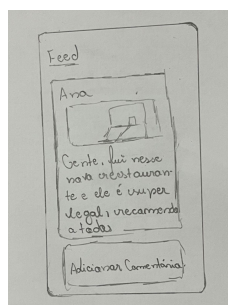 Feed
Ana
Gente, fui nesse
novo restauran-
te e ele é super
legal, recomendo
a todos
Adicionar Comentário